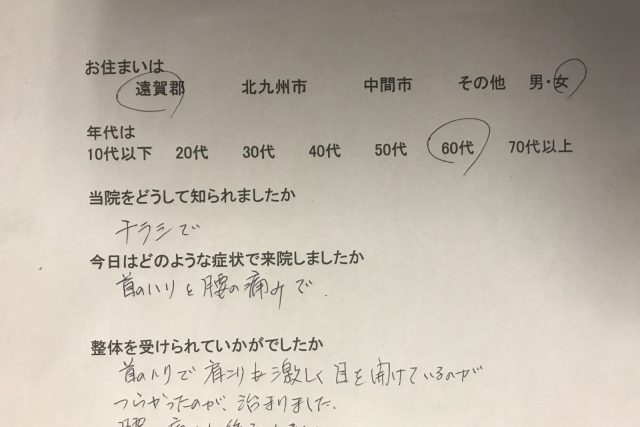 お住まいは
遠賀郡 北九州市 中間市 その他 男・女
年代は
10代以下 20代 30代 40代 50代 60代 70代以上
当院をどうして知られましたか
チラシで
今日はどのような症状で来院しましたか
首のハリと腰の痛みで.
整体を受けられていかがでしたか
首のハリで肩こりも激しく目を開けているのが
つらかったのが、治まりました.
腰